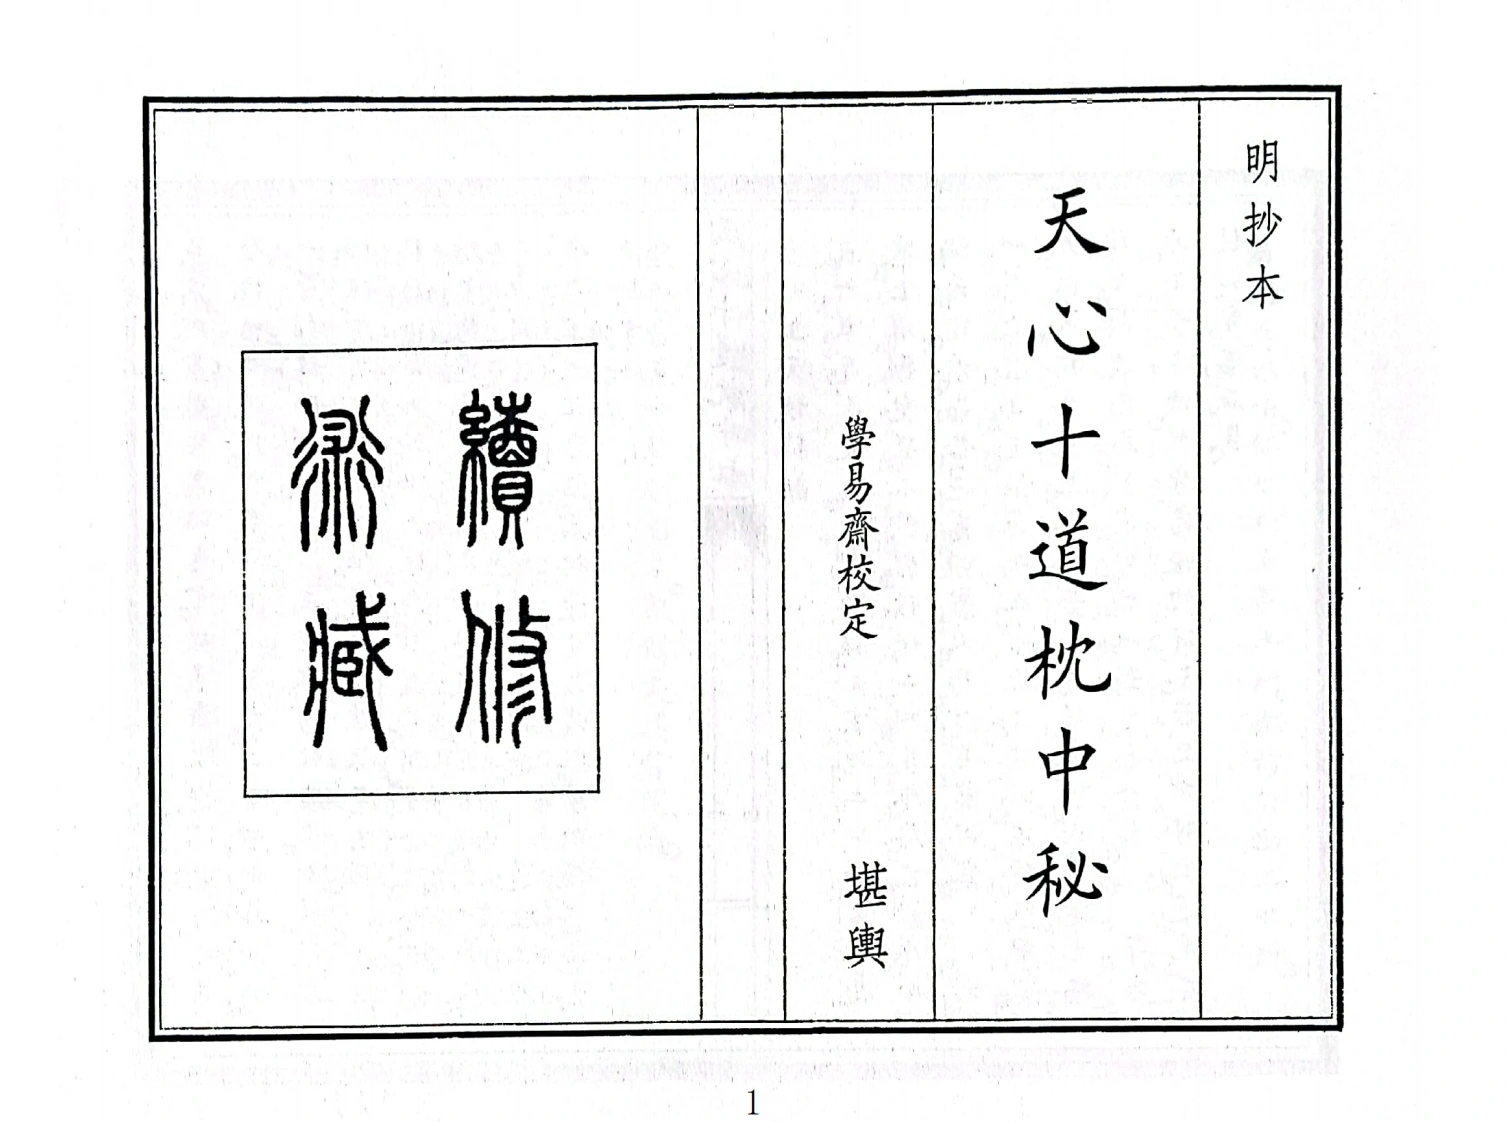 明抄本
天心十道枕中秘
學易齋校定
堪輿
續修
術藏
1